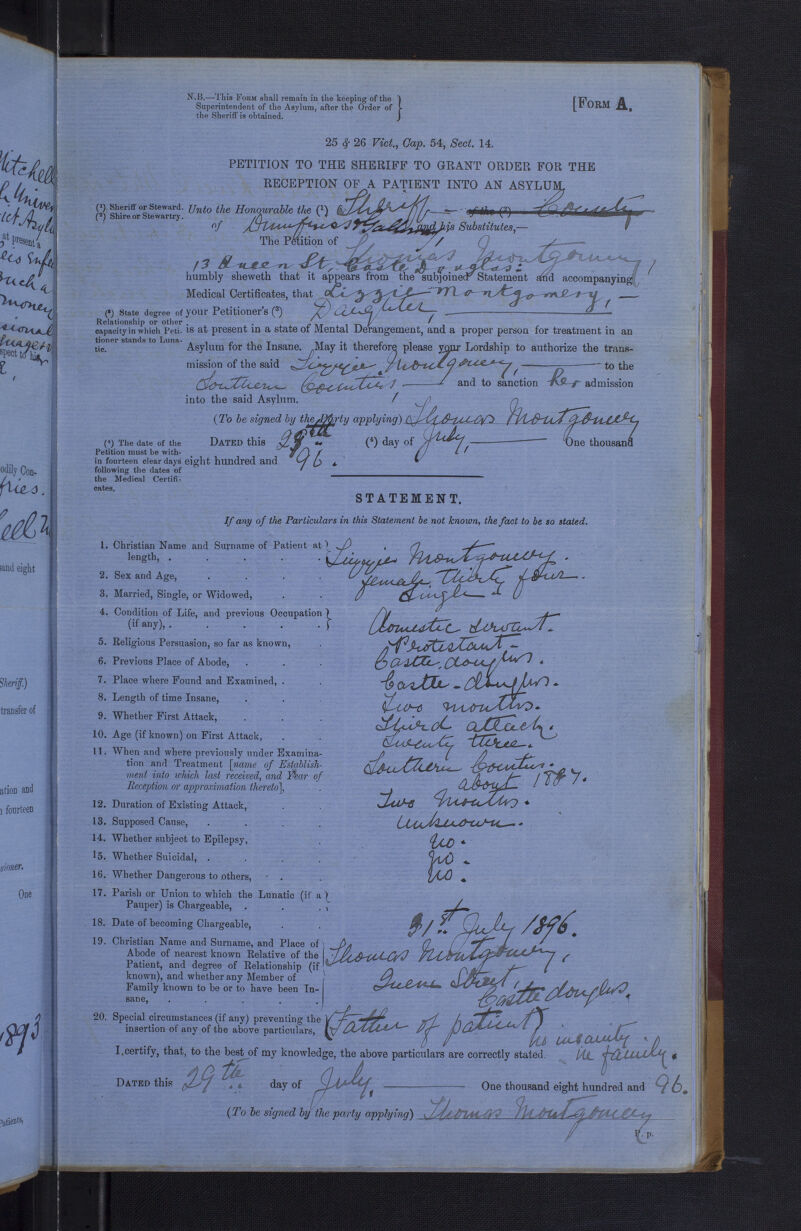 N.B.—This Form shall remain in the keeping of the
Superintendent of the Asylum, after the Order of
the Sheriff is obtained.
[Form A.
25 & 26 Vict., Cap. 54, Sect. 14.
PETITION TO THE SHERIFF TO GRANT ORDER FOR THE
RECEPTION OF A PATIENT INTO AN ASYLUM.
(1) Sheriff or Steward.
(2) Shire or Stewartry.
Unto the Honourable the (1) Sheriff — of the (2) County
of Dumfries & Galloway and his Substitutes,—
The Petition of Thomas Montgomery,
13 Queen St. Castle Douglas:
humbly sheweth that it appears from the subjoined Statement and accompanying
Medical Certificates, that Lizzie Montgomery, —
(3) State degree of
Relationship or other
capacity in which Peti-
tioner stands to Luna-
tic.
your Petitioner's (3) Daughter,
is at present in a state of Mental Derangement, and a proper person for treatment in an
Asylum for the Insane. May it therefore please your Lordship to authorize the trans-
mission of the said Lizzie Montgomery, — to the
Southern Counties, — and to sanction her admission
into the said Asylum.
(To be signed by the Party applying) Thomas Montgomery
(4) The date of the
Petition must be with-
in fourteen clear days
following the dates of
the Medical Certifi-
cates.
Dated this 29th (4) day of July, — One thousand
eight hundred and 96.
STATEMENT.
If any of the Particulars in this Statement be not known, the fact to be so stated.
1. Christian Name and Surname of Patient at
length, . Lizzie Montgomery.
2. Sex and Age, female, thirty four.
3. Married, Single, or Widowed, Single
4. Condition of Life, and previous Occupation
(if any), . Domestic servant.
5. Religious Persuasion, so far as known, Protestant
6. Previous Place of Abode, Castle-douglas.
7. Place where Found and Examined, . Castle-douglas.
8. Length of time Insane, Two months.
9. Whether First Attack, Third attack.
10. Age (if known) on First Attack, Twenty three.
11. When and where previously under Examina-
tion and Treatment [name of Establish-
ment into which last received, and Year of
Reception or approximation thereto], Southern Counties.
about 1887.
12. Duration of Existing Attack, Two Months.
13. Supposed Cause, Unknown.
14. Whether subject to Epilepsy, No.
15. Whether Suicidal, . No.
16. Whether Dangerous to others, No.
17. Parish or Union to which the Lunatic (if a
Pauper) is Chargeable, .
18. Date of becoming Chargeable, 31st July 1896.
19. Christian Name and Surname, and Place of
Abode of nearest known Relative of the
Patient, and degree of Relationship (if
known), and whether any Member of
Family known to be or to have been In-
sane, . Thomas Montgomery,
Queen Street,
Castle douglas.
20. Special circumstances (if any) preventing the
insertion of any of the above particulars, (Father of patient)
no insanity
in family.
I certify, that, to the best of my knowledge, the above particulars are correctly stated.
Dated this 29th day of July, — One thousand eight hundred and 96.
(To be signed by the party applying) Thomas Montgomery
P. p.
Mitchell
at present a
such a
odily Con-
and eight
Sheriff.)
transfer of
ation and
n fourteen
One
1893
Patients,